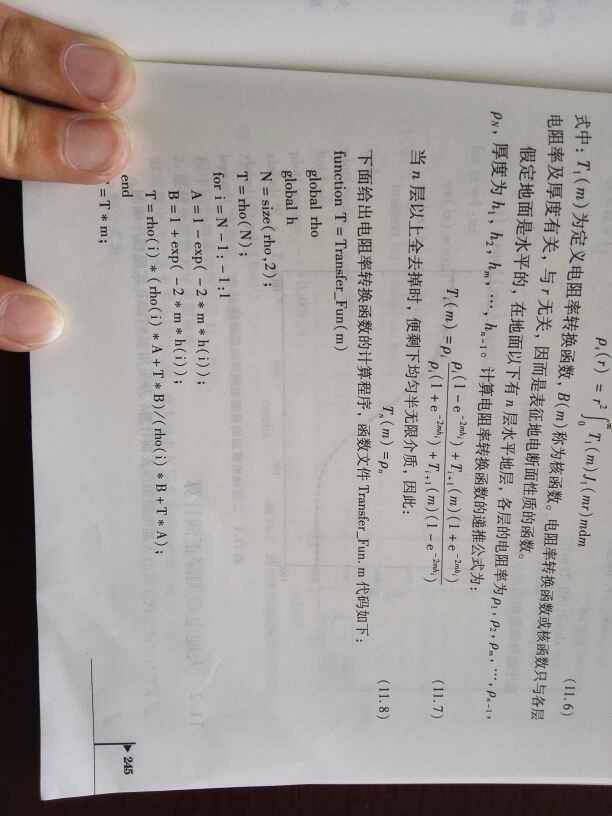 ρ₁(r) = r² ∫₀^∞ T₁(m)J₁(mr)mdm (11.6)
式中：T₁(m)为定义电阻率转换函数，B(m)称为核函数。电阻率转换函数或核函数只与各层
电阻率及厚度有关，与 r 无关，因而是表征地电断面性质的函数。
假定地面是水平的，在地面以下有 n 层水平地层，各层的电阻率为ρ₁，ρ₂，ρₘ，…，ρₙ₋₁，
ρ_N，厚度为 h₁，h₂，hₘ，…，hₙ₋₁。计算电阻率转换函数的递推公式为：
Tᵢ(m) = ρᵢ [ρᵢ(1－e^(-2mhᵢ))＋Tᵢ₊₁(m)(1＋e^(-2mhᵢ))] / [ρᵢ(1＋e^(-2mhᵢ))＋Tᵢ₊₁(m)(1－e^(-2mhᵢ))] (11.7)
当 n 层以上全去掉时，便剩下均匀半无限介质，因此：
Tₙ(m) = ρₙ (11.8)
下面给出电阻率转换函数的计算程序，函数文件 Transfer_Fun. m 代码如下：
function T = Transfer_Fun(m)
global rho
global h
N = size(rho,2);
T = rho(N);
for i = N－1：－1:1
A = 1－exp(－2＊m＊h(i));
B = 1＋exp(－2＊m＊h(i));
T = rho(i)＊(rho(i)＊A＋T＊B)/(rho(i)＊B＋T＊A);
end
= T＊m;
245